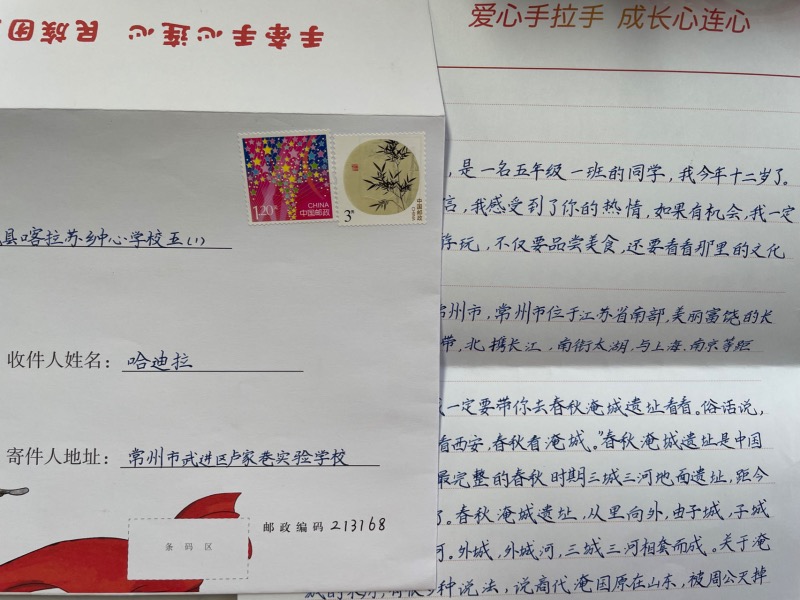 手牵手心连心 民族团
1.20元
CHINA
中国邮政
3元
中国邮政
CHINA
县喀拉苏乡中心学校五(1)
收件人姓名：哈迪拉
寄件人地址：常州市武进区卢家巷实验学校
邮政编码213168
条码区
爱心手拉手 成长心连心
，是一名五年级一班的同学，我今年十二岁了。
言，我感受到了你的热情，如果有机会，我一定
游玩，不仅要品尝美食，还要看看那里的文化
常州市，常州市位于江苏省南部，美丽富饶的长
带，北携长江，南衔太湖，与上海、南京等距
我一定要带你去春秋淹城遗址看看。俗话说，
看西安，春秋看淹城。"春秋淹城遗址是中国
最完整的春秋时期三城三河地面遗址，距今
了。春秋淹城遗址，从里向外，由子城，子城
河。外城，外城河，三城三河相套而成。关于淹
种说法，说商代淹国原在山东，被周公灭掉